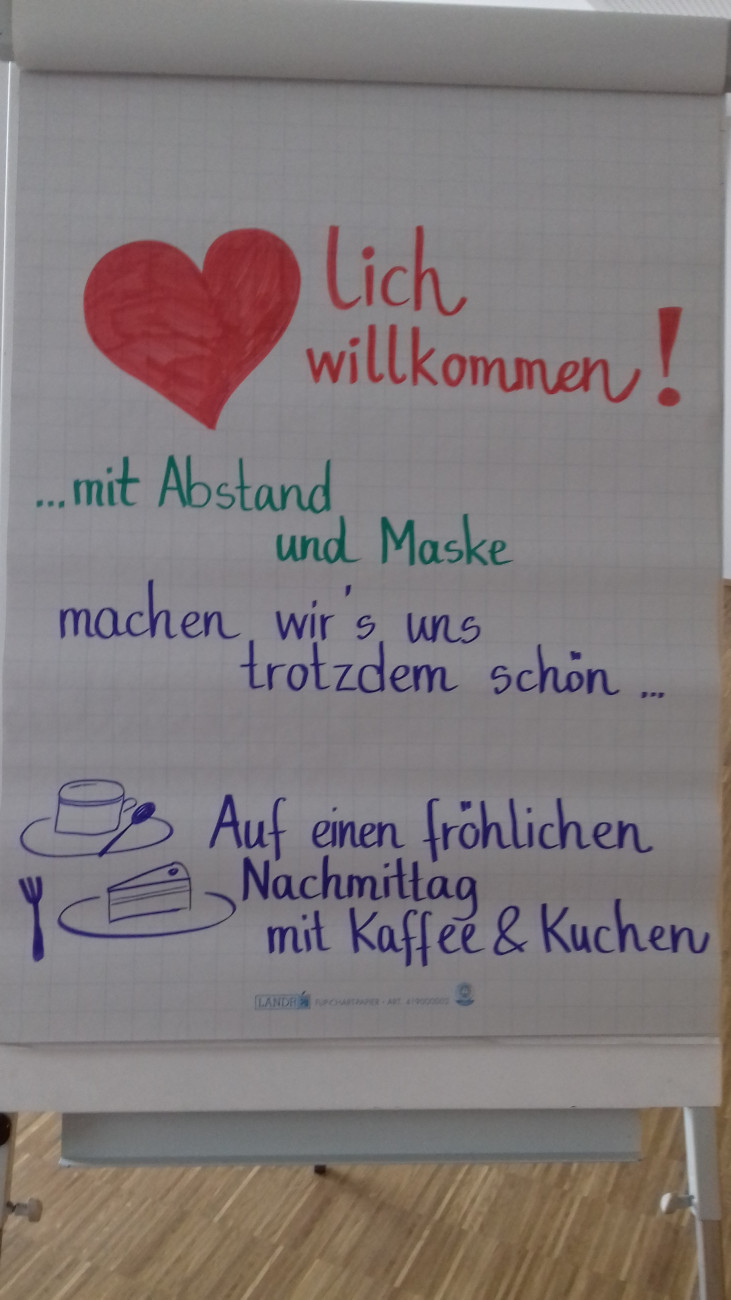 lich
willkommen!
...mit Abstand
und Maske
machen wir's uns
trotzdem schön ...
Auf einen fröhlichen
Nachmittag
mit Kaffee & Kuchen